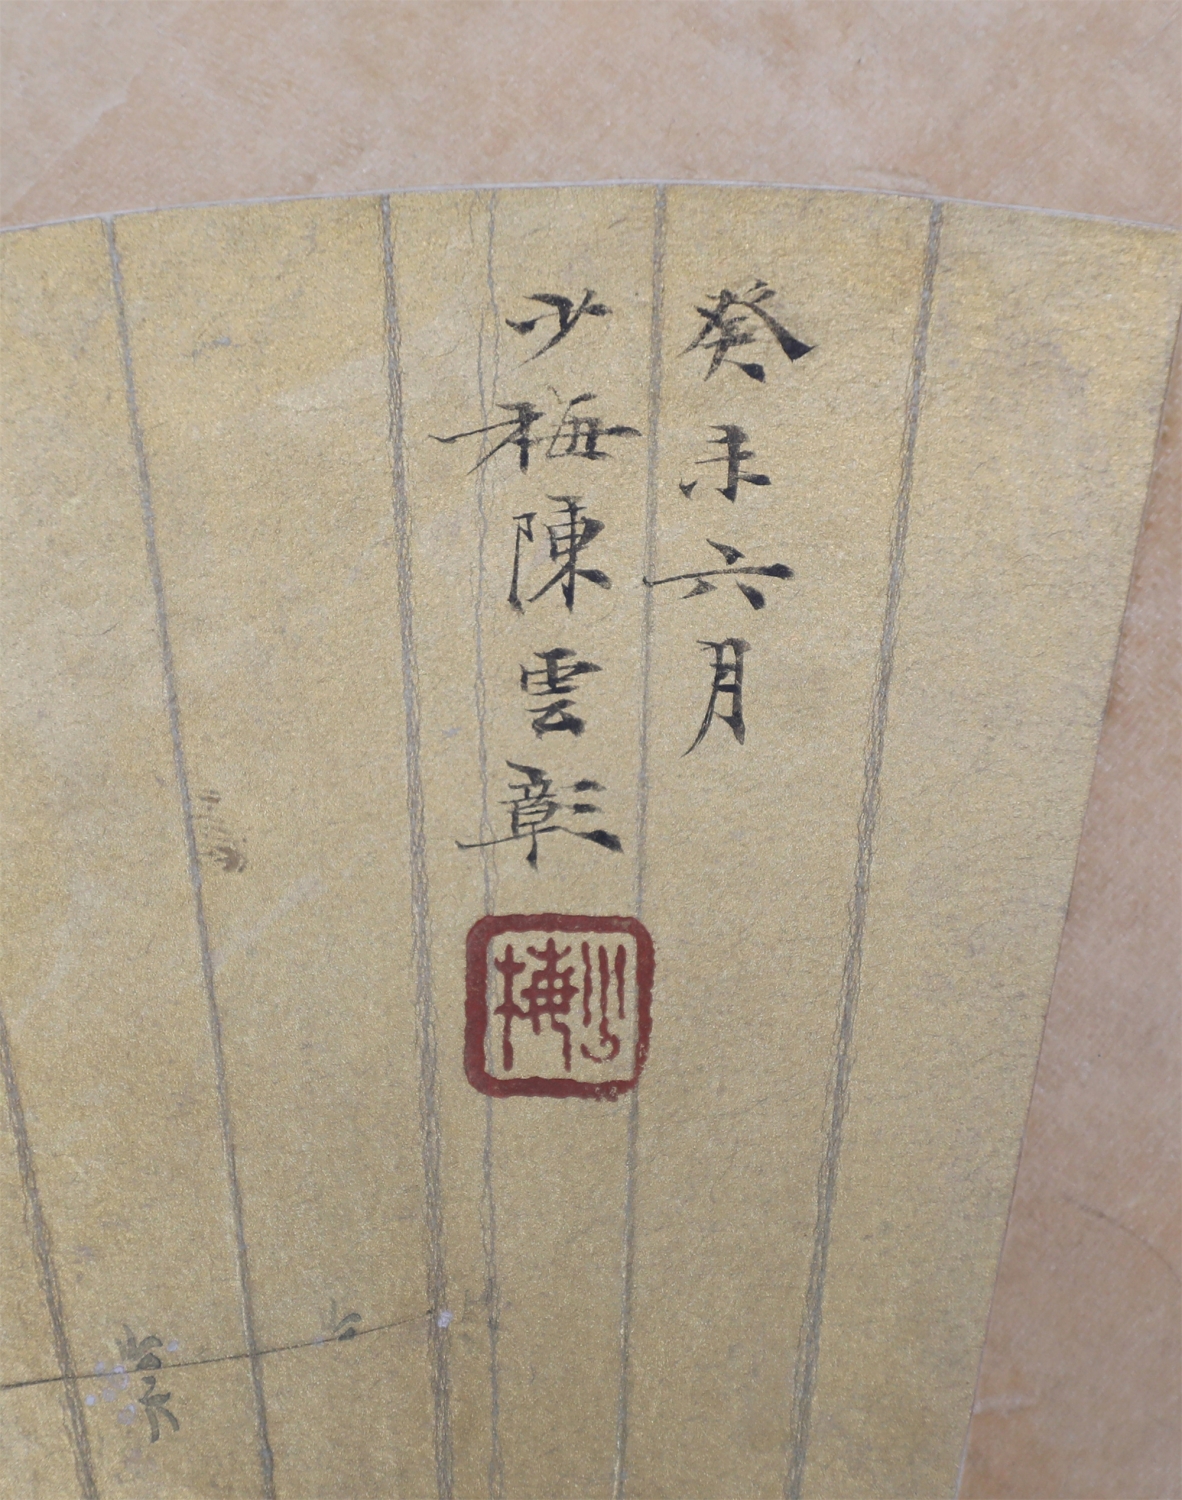 癸未六月
少梅陳雲彰
少梅